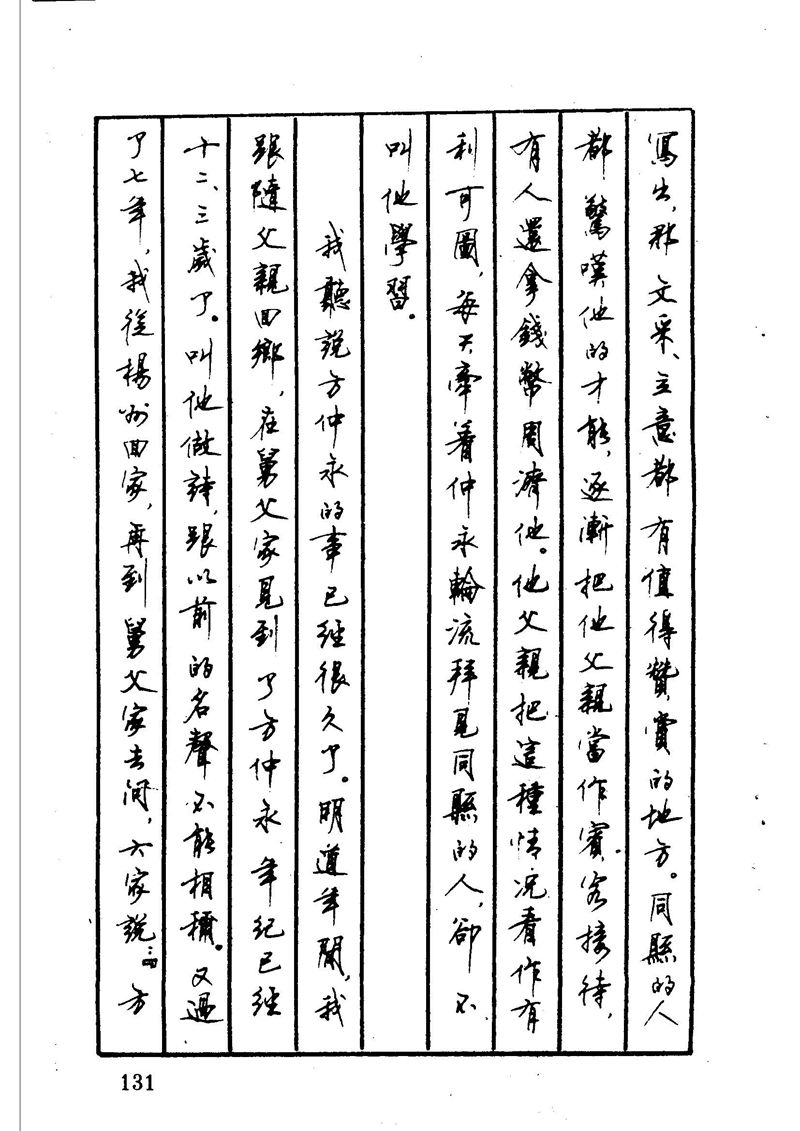 寫出,那文采、立意都有值得贊賞的地方。同縣的人
都驚嘆他的才能,逐漸把他父親當作賓客接待,
有人還拿錢幣周濟他。他父親把這種情况看作有
利可圖,每天牽着仲永輪流拜見同縣的人,卻不
叫他學習。
我聽説方仲永的事已經很久了。明道年間,我
跟隨父親回鄉,在舅父家見到了方仲永年紀已經
十二、三歲了。叫他做詩,跟以前的名聲不能相稱。又過
了七年,我從楊州回家,再到舅父家去問,大家説:“方
131